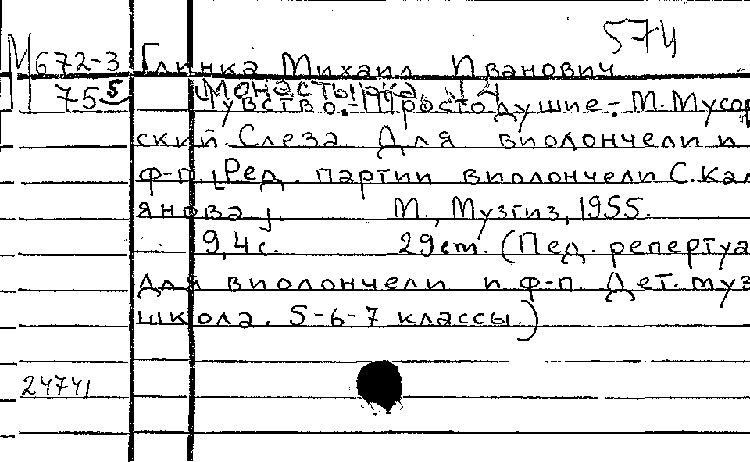 574
М672-3 Глинка Михаил Иванович
75 5 Монастырка.
Чувство.- Простодушие-. М.Мусор
ский. Слеза. Для виолончели и
ф-п. [Ред. партии виолончели С.Кал
янова].  М., Музгиз, 1955.
9,4с.  29ст. (Пед. репертуа
для виолончели и ф-п. Дет. муз
школа. 5-6-7 классы.)
24741